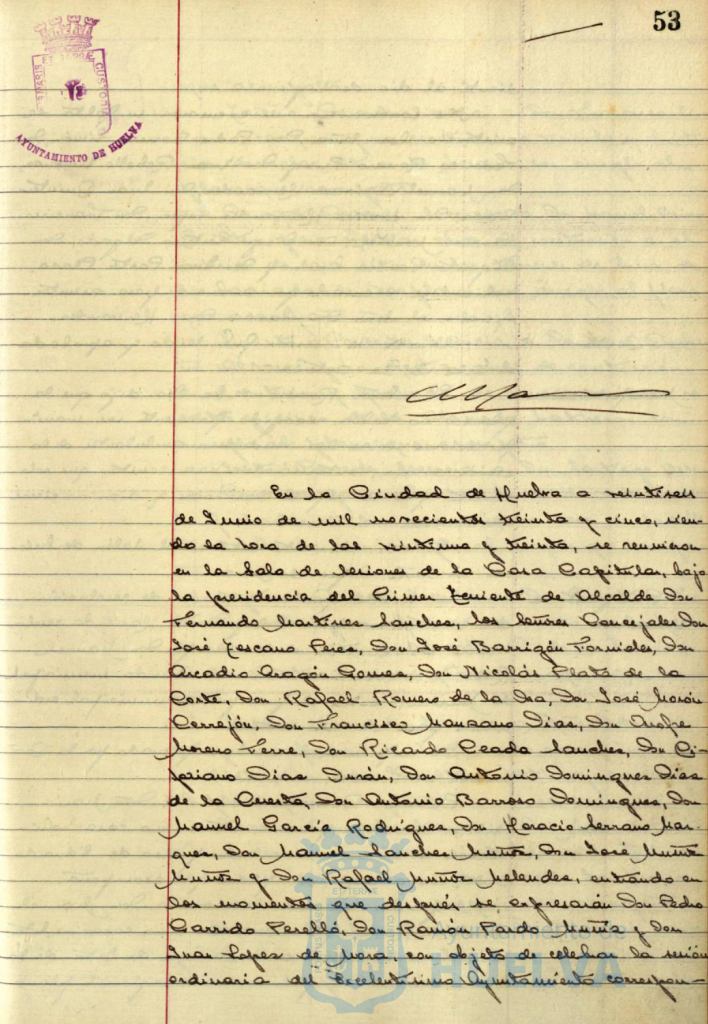 53
PORTUS MARIS ET TERRAE CUSTODIA
AYUNTAMIENTO DE HUELVA
En la Ciudad de Huelva a veintiseis
de Junio de mil novecientos treinta y cinco, sien-
do la hora de las veintiuna y treinta, se reunieron
en la Sala de Sesiones de la Casa Capitular, bajo
la presidencia del Primer Teniente de Alcalde Don
Fernando Martinez Sanchez, los Señores Concejales Don
José Toscano Perez, Don José Barrigón Fornieles, Don
Arcadio Aragón Gomez, Don Nicolás Plata de la
Corte, Don Rafael Romero de la Osa, Don José Morón
Cerrejón, Don Francisco Manzano Dias, Don Onofre
Moreno Ferre, Don Ricardo Ceada Sanchez, Don Ci-
priano Dias Durán, Don Antonio Dominguez Dias
de la Cuesta, Don Antonio Barroso Dominguez, Don
Manuel García Rodríguez, Don Horacio Serrano Mar-
quez, Don Manuel Sanchez Muñoz, Don José Muñiz
Muñiz y Don Rafael Muñoz Melendez, entrando en
los momentos que después se expresarán Don Pedro
Garrido Perelló, Don Ramón Pardo Muñiz y Don
Juan Lopez de Mora, con objeto de celebrar la sesión
ordinaria del Excelentísimo Ayuntamiento correspon-
Ayuntamiento de
HUELVA